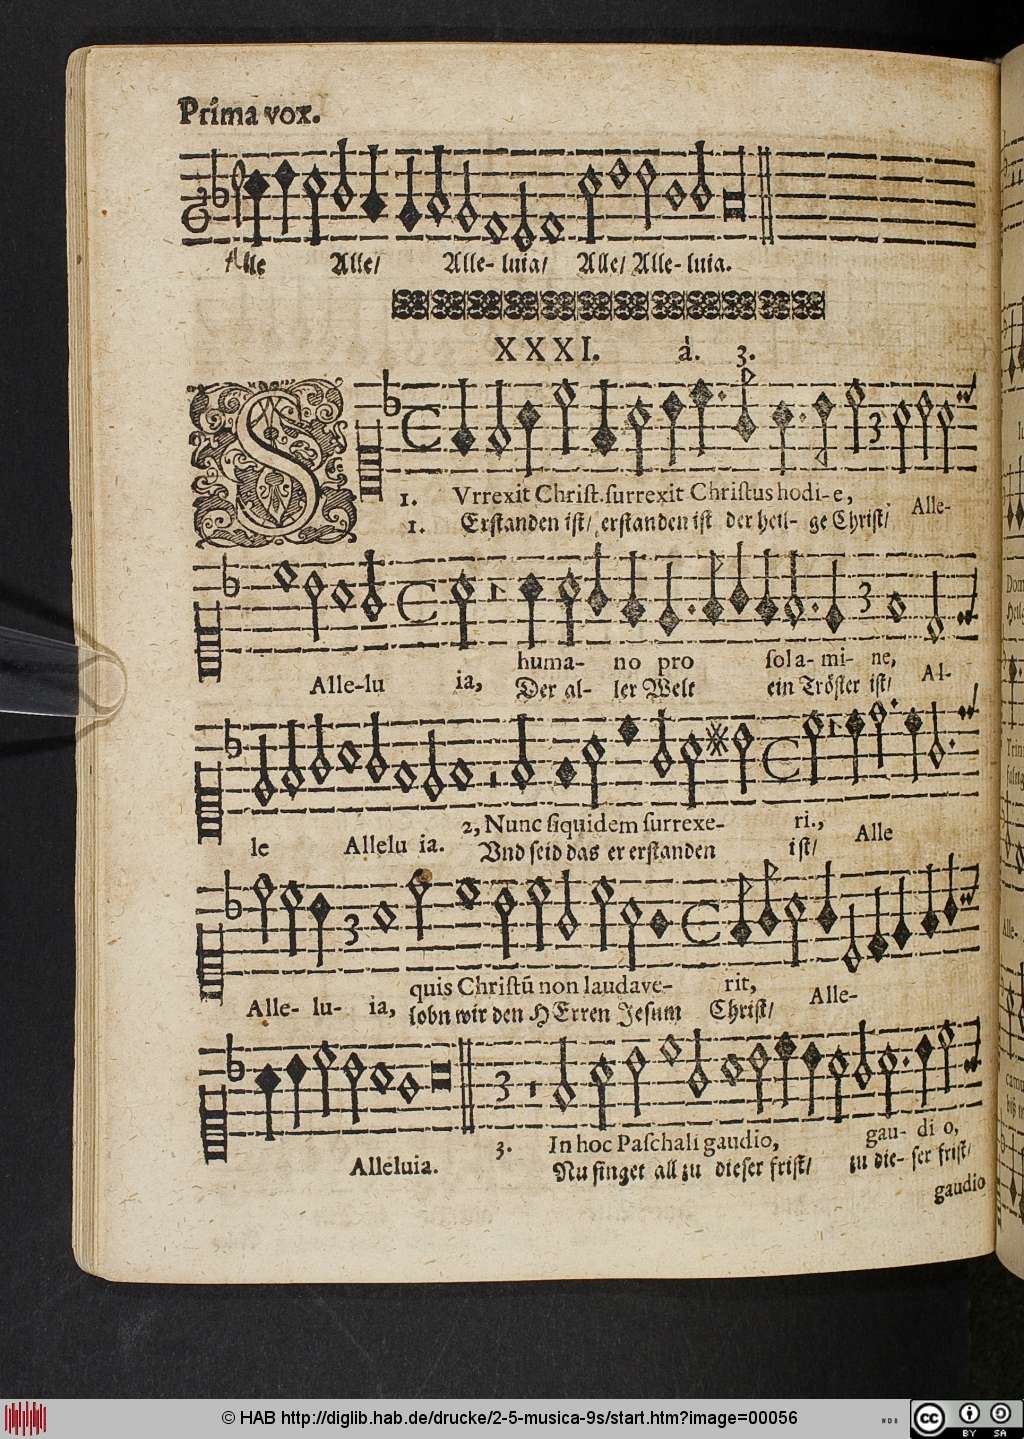 Prima vox.
Alle Alle/ Alle- luia/ Alle/ Alle- luia.
XXXI. à. 3.
S
1. Vrrexit Chriſt. ſurrexit Chriſtus hodi- e, Alle-
1. Erſtanden iſt/ erſtanden iſt der heil- ge Chriſt/
Alle-lu ia, huma- no pro ſola- mi- ne, Al-
Der al- ler Welt ein Tröſter iſt/
le Allelu ia. 2, Nunc ſiquidem ſurrexe- ri., Alle
Vnd ſeid das er erſtanden iſt/
Alle- lu- ia, quis Chriſtū non laudave- rit, Alle-
lobn wir den HErren Jeſum Chriſt/
Alleluia. 3. In hoc Paſchali gaudio, gau- di o,
Nu ſinget all zu dieſer friſt/ zu die- ſer friſt/
gaudio
© HAB http://diglib.hab.de/drucke/2-5-musica-9s/start.htm?image=00056
cc BY SA